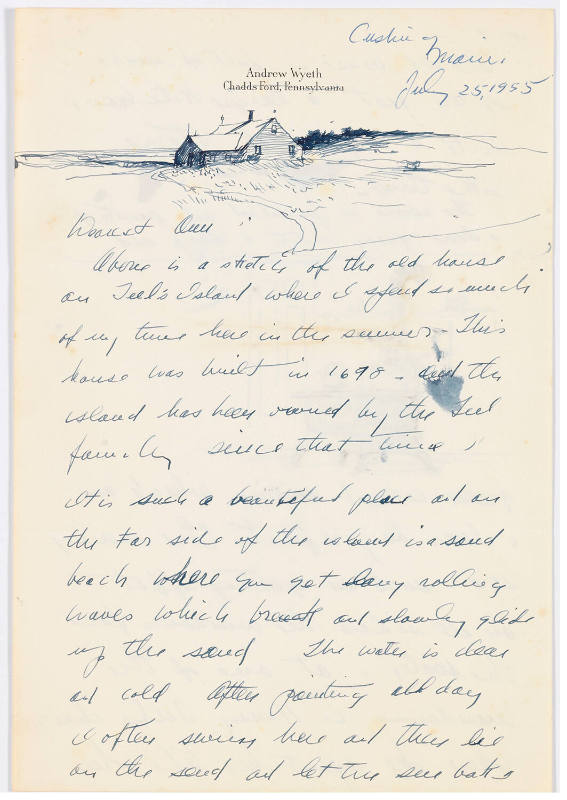 Cushing
Maine,
July 25, 1955
Andrew Wyeth
Chadds Ford, Pennsylvania
Dearest Ann
Above is a sketch of the old house
on Teel's Island where I spend so much
of my time here in the summer. This
house was built in 1698 - and the
island has been owned by the Teel
family since that time,
It is such a beautiful place and on
the Far side of the island is a sand
beach where you get long rolling
waves which break and slowly glide
up the sand The water is clear
and cold After painting all day
I often swim here and then lie
on the sand and let the sun bake